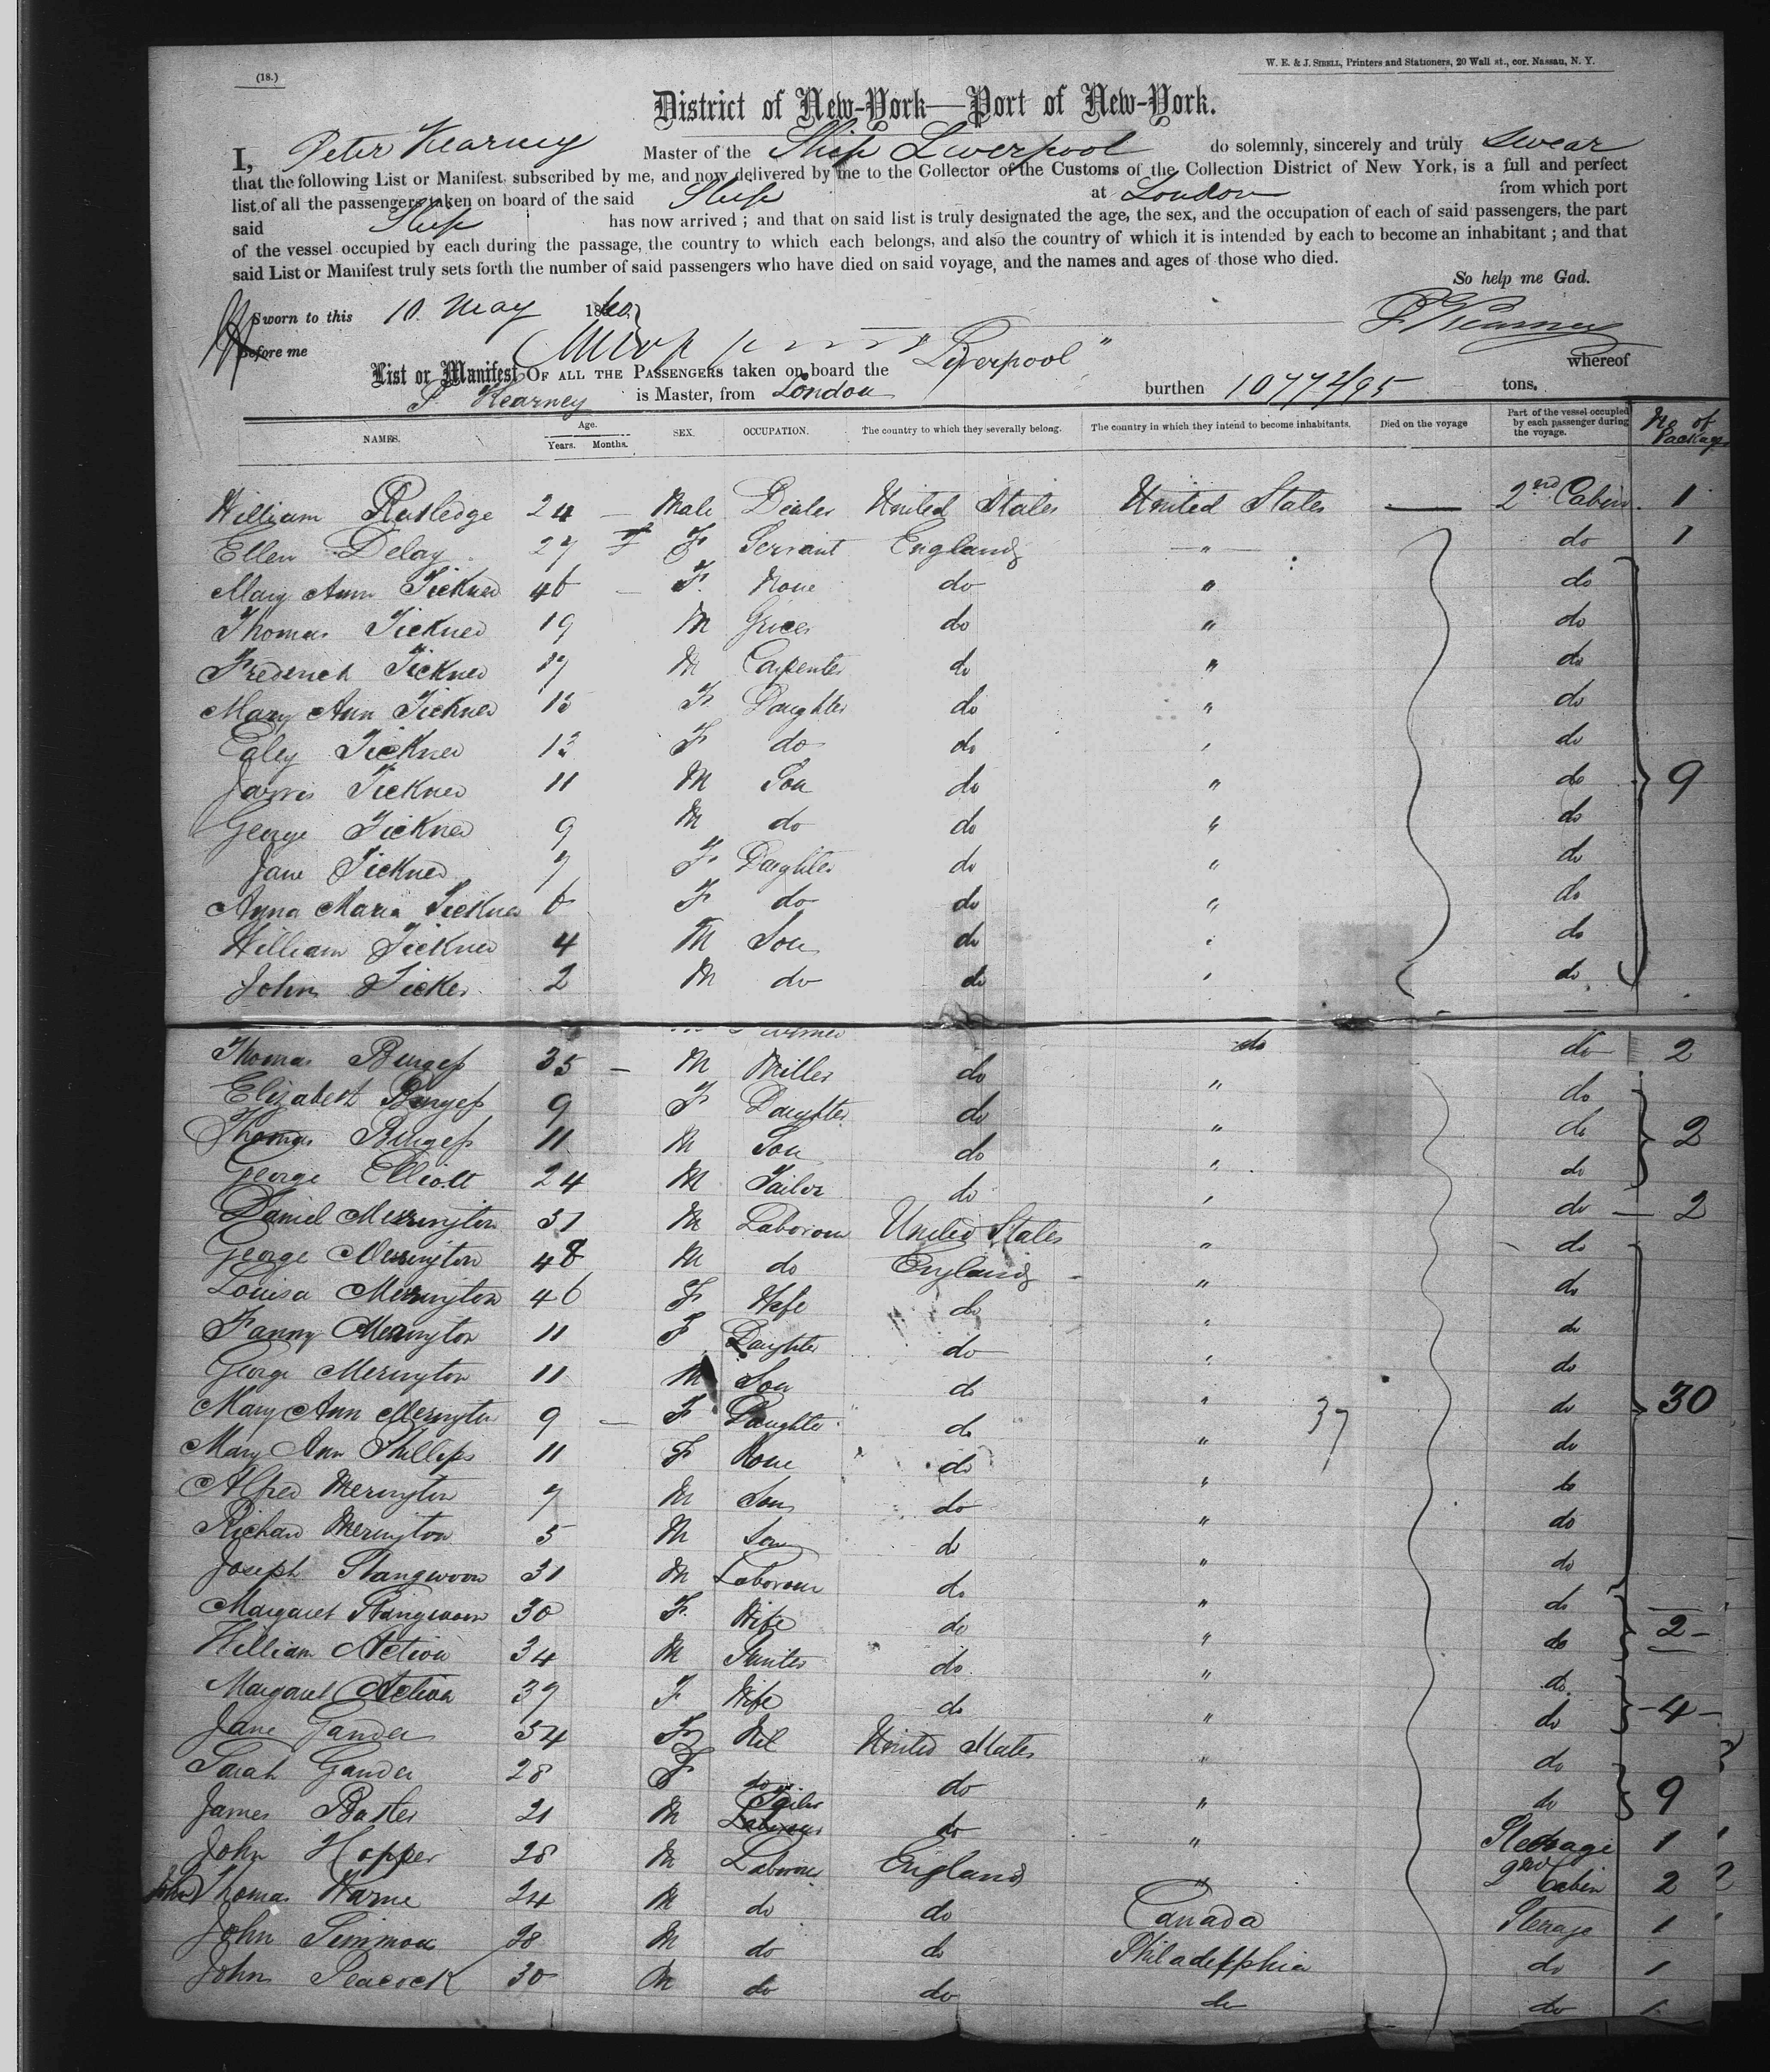 (18.)
W. E. & J. SIBELL, Printers and Stationers, 20 Wall st., cor. Nassau, N. Y.
District of New-York—Port of New-York.
I, Peter Kearney Master of the Ship Liverpool do solemnly, sincerely and truly swear
that the following List or Manifest, subscribed by me, and now delivered by me to the Collector of the Customs of the Collection District of New York, is a full and perfect
list of all the passengers taken on board of the said Ship at London from which port
said Ship has now arrived; and that on said list is truly designated the age, the sex, and the occupation of each of said passengers, the part
of the vessel occupied by each during the passage, the country to which each belongs, and also the country of which it is intended by each to become an inhabitant; and that
said List or Manifest truly sets forth the number of said passengers who have died on said voyage, and the names and ages of those who died.
So help me God.
Sworn to this 10 May 1860 P Kearney
Before me
List or Manifest OF ALL THE PASSENGERS taken on board the "Liverpool" whereof
P Kearney is Master, from London burthen 1077 2/95 tons.
NAMES. Age. Years. Months. SEX. OCCUPATION. The country to which they severally belong. The country in which they intend to become inhabitants. Died on the voyage Part of the vessel occupied by each passenger during the voyage. No of Packages
William Rutledge 24 — Male Dealer United States United States — 2nd Cabin 1
Ellen Delay 27 F Servant England " do 1
Mary Ann Tickner 46 — F None do " do
Thomas Tickner 19 M Grocer do " do
Frederick Tickner 17 M Carpenter do " do
Mary Ann Tickner 15 F Daughter do " do
Tickner 12 F do do " do
Jarvis Tickner 11 M Son do " do 9
George Tickner 9 M do do " do
Jane Tickner 7 F Daughter do " do
Anna Maria Tickner 6 F do do " do
William Tickner 4 M Son do " do
John Ticker 2 M do do " do
do do 2
Thomas Burgess 35 — M Miller do " do
Elizabeth Burgess 9 F Daughter do " do 2
Thomas Burgess 11 M Son do " do
George Elliott 24 M Tailor do " do 2
Daniel Merrington 31 M Laborour United States " do
George Merrington 48 M do England " do
Louisa Merrington 46 F Wife do " do
Fanny Merrington 11 F Daughter do " do
George Merington 11 M Son do " do 30
Mary Ann Merington 9 — F Daughter do " 37 do
Mary Ann Phillips 11 F None do " do
Alfred Merington 7 M Son do " do
Richard Merington 5 M Son do " do
Joseph Stangwoon 31 M Laborour do " do
Margaret Stangwoon 30 F Wife do " do 2
William Action 34 M Printer do " do
Margaret Action 37 F Wife do " do 4
Jane Gander 54 F Nil United States " do
Sarah Gander 28 F do do " do 9
James Baxter 21 M Tailor do " Steerage 1
John Hopper 28 M Laborour England " 2nd Cabin 2
John Thomas Warne 24 M do do Canada Sterage 1
John Simmon 28 M do do Philadelphia do 1
John Peacock 30 M do do do do 1